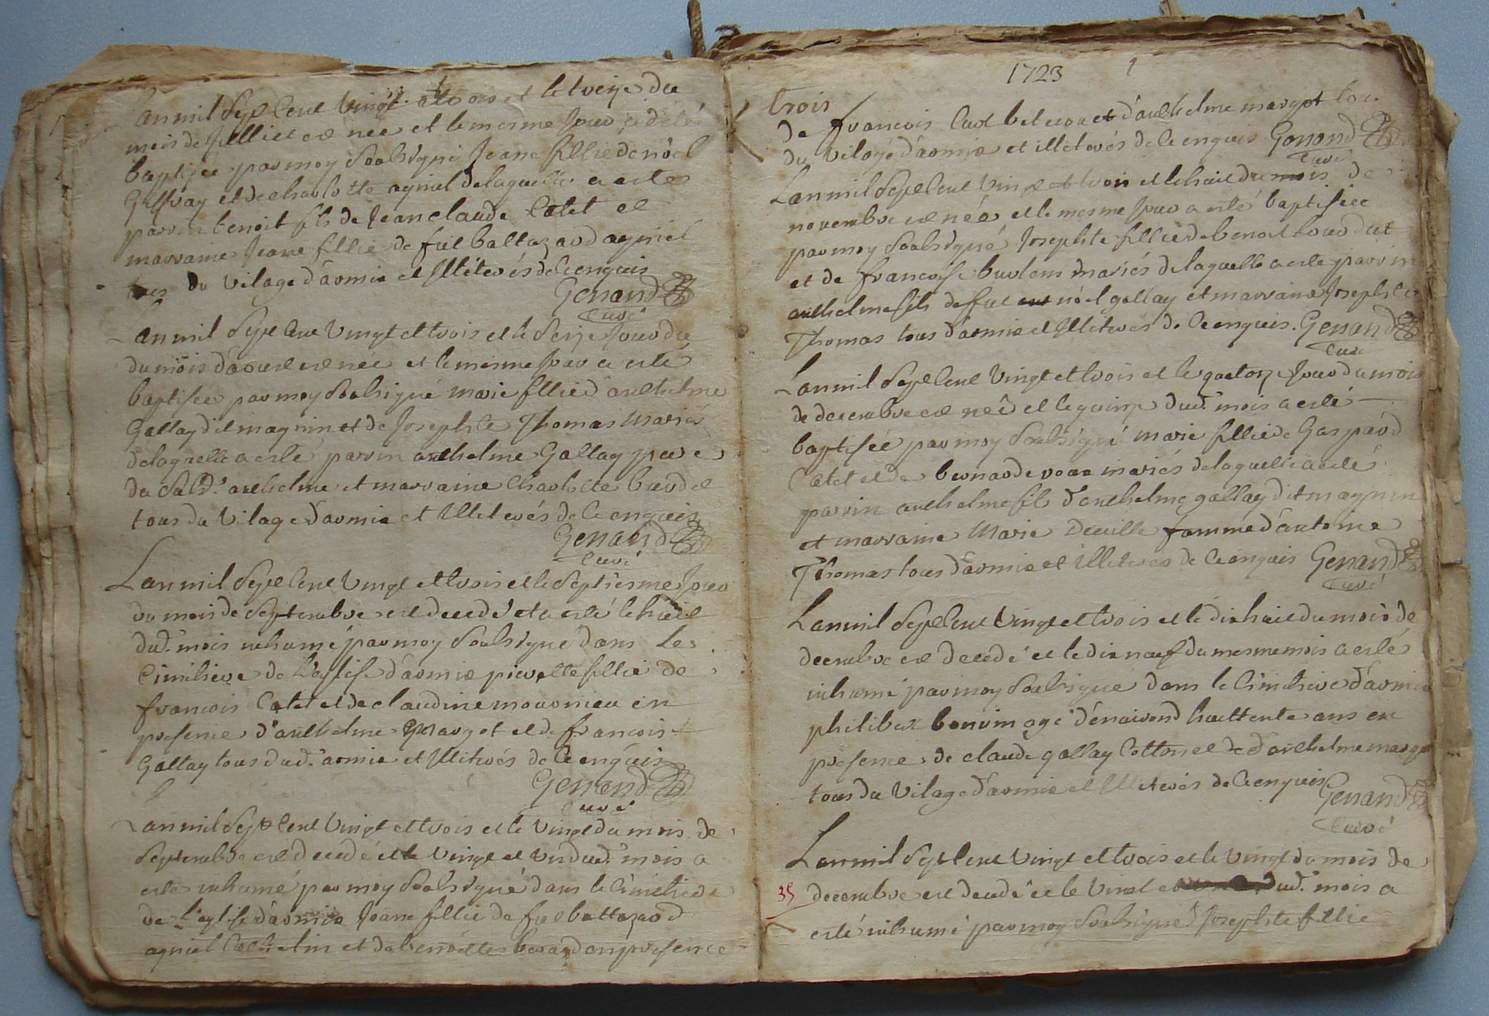 Lan mil Sept Cent Vingt trois et le treize du
mois de Jullliet est née et le mesme Jour a esté
baptisée par moy Soubsigné Jeane fillie de noel
Gallay et de charlotte agniel de laquelle a esté
parrin benoit fils de Jean claude Catet et
marraine Jeane fillie de feu baltazard agniel
du Vilage d'aomie et Illiterés de ce enquis
Genand
Curé
Lan mil Sept Cent Vingt et trois et le Seize Jour du
du mois d'aoust est née et le mesme Jour a esté
baptisée par moy Soubsigné marie fillie d'anthelme
Gallay dit magnin et de Josephte Thomas Mariés
de laquelle a esté parrin anthelme Gallay pere
du Sud.t anthelme et marraine Charlotte
tous du Vilage d'aomie et Illiterés de ce enquis
Genand
Curé
Lan mil Sept Cent Vingt et trois et le Septiesme Jour
du mois de Septembre est decedé et a esté le huit
dud. mois inhumé par moy Soubsigne dans le
Cimitiere de l'eglise d'aomie pierrette fillie de
francois Catet et de claudine en
presence d'anthelme Margot et de francois
Gallay tous dud. aomie et Illiterés de ce enquis
Genand
Curé
Lan mil Sept Cent Vingt et trois et le Vingt du mois de
Septembre est decedé et le Vingt et un dud. mois a
esté inhumé par moy Soubsigné dans le Cimitiere
de l'eglise d'aomie Jeane fillie de feu baltazard
agniel et de benoitte en presence
1723
trois
de francois et d'anthelme margot tous
du Vilage d'aomie et illiterés de ce enquis Genand
Curé
Lan mil Sept Cent Vingt et trois et le huit du mois de
novembre est née et le mesme Jour a esté baptisée
par moy Soubsigné Josephte fillie de benoit
et de francoise mariés de laquelle a esté parrin
anthelme fils de feu noel gallay et marraine Josephte
Thomas tous d'aomie et Illiterés de ce enquis. Genand
Curé
Lan mil Sept Cent Vingt et trois et le quatorze Jour du mois
de decembre est née et le quinze dud. mois a esté
baptisée par moy Soubsigné marie fillie de Gaspard
Catet et de bernarde mariés de laquelle a esté
parrin anthelme fils d'anthelme gallay dit magnin
et marraine Marie famme d'antoine
Thomas tous d'aomie et Illiterés de ce enquis Genand
Curé
Lan mil Sept Cent Vingt et trois et le dix huit du mois de
decembre est decedé et le dix neuf du mesme mois a esté
inhumé par moy Soubsigne dans le Cimitiere d'aomie
philibert bonvin agé d'environ huittente ans en
presence de claude gallay et d'anthelme margot
tous du Vilage d'aomie et Illiterés de ce enquis Genand
Curé
Lan mil Sept Cent Vingt et trois et le Vingt du mois de
decembre est decedé et le Vingt dud. mois a
esté inhumé par moy Soubsigné Josephte fillie